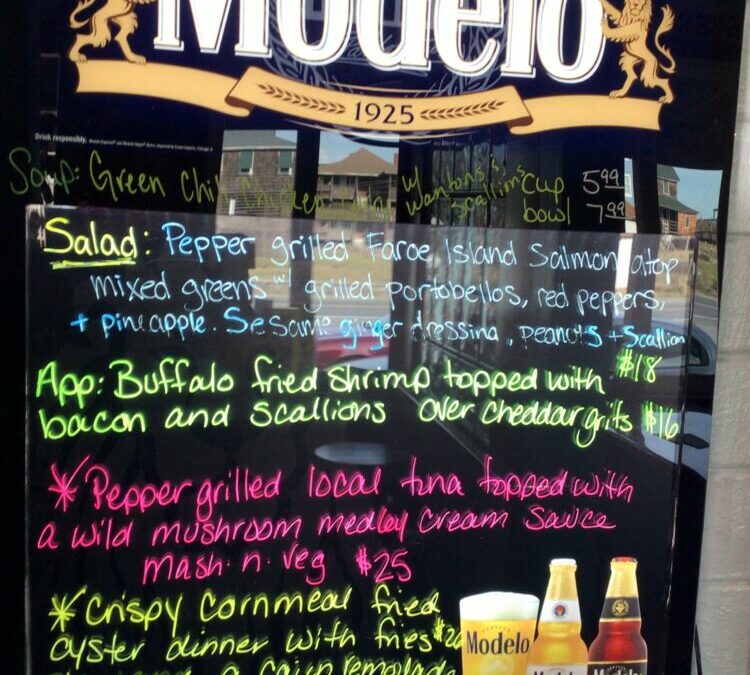 Modelo
1925
Drink responsibly.
Soup: Green Chili Chicken w/ Wantons & scallions cup 5.99
bowl 7.99
Salad: Pepper grilled Faroe Island Salmon atop
mixed greens w/ grilled portobellos, red peppers,
+ pineapple. Sesame ginger dressing, peanuts + Scallion
$18
App: Buffalo fried shrimp topped with
bacon and scallions over cheddar grits $16
* Pepper grilled local tuna topped with
a wild mushroom medley cream sauce
mash n veg $25
* Crispy cornmeal fried
oyster dinner with fries
a cajun remolade
Modelo